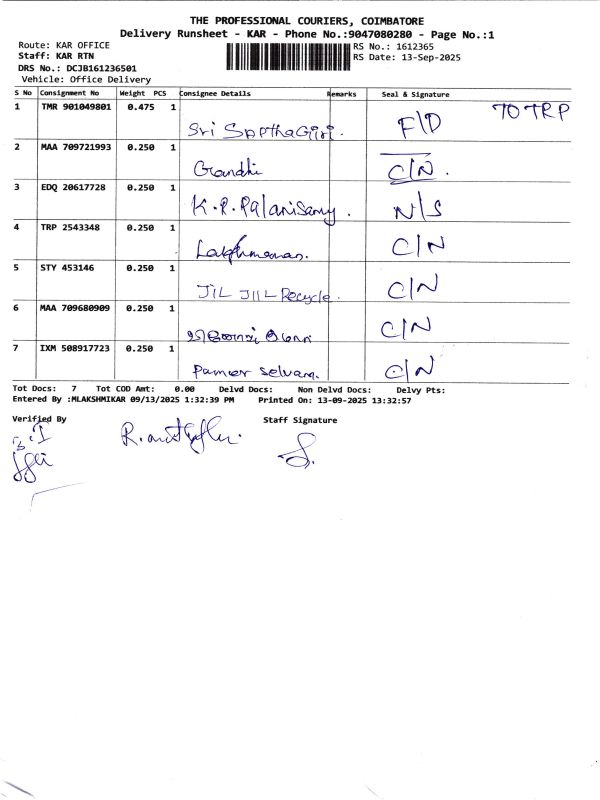 THE PROFESSIONAL COURIERS, COIMBATORE
Delivery Runsheet - KAR - Phone No.:9047080280 - Page No.:1
Route: KAR OFFICE RS No.: 1612365
Staff: KAR RTN RS Date: 13-Sep-2025
DRS No.: DCJB161236501
Vehicle: Office Delivery
S No Consignment No Weight PCS Consignee Details Remarks Seal & Signature
1 TMR 901049801 0.475 1 Sri SapthaGiri. F/D TO TRP
2 MAA 709721993 0.250 1 Gandhi C/N.
3 EDQ 20617728 0.250 1 K.R.Palanisamy. N/S
4 TRP 2543348 0.250 1 Lakshmanan. C/N
5 STY 453146 0.250 1 JIL JIL Recycle. C/N
6 MAA 709680909 0.250 1 C/N
7 IXM 508917723 0.250 1 Selvam. C/N
Tot Docs: 7 Tot COD Amt: 0.00 Delvd Docs: Non Delvd Docs: Delvy Pts:
Entered By :MLAKSHMIKAR 09/13/2025 1:32:39 PM Printed On: 13-09-2025 13:32:57
Verified By Staff Signature